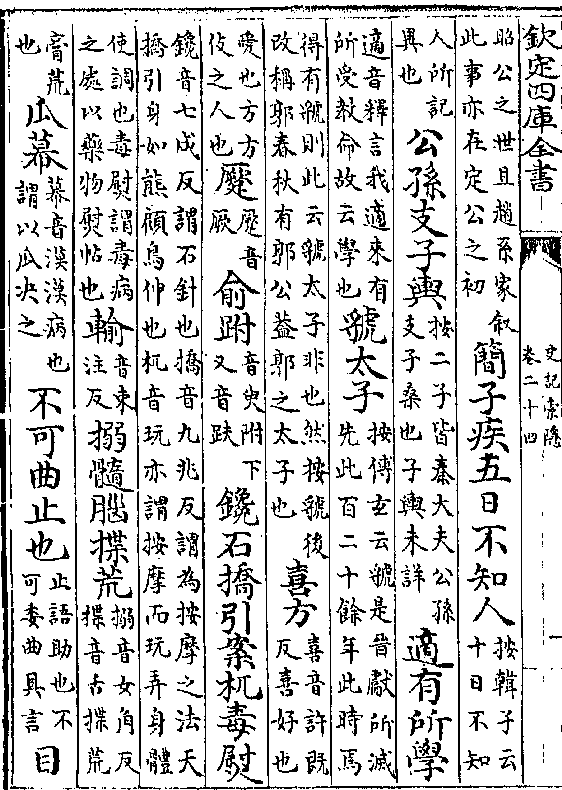 欽定四庫全書
史記索隱
卷二十四
昭公之世且趙系家叙
此事亦在定公之初
簡子疾五日不知人
按韓子云
十日不知
人所記
異也
公孫支子輿
按二子皆秦大夫公孫
支子桑也子輿未詳
適有所學
適音釋言我適來有
所受教命故云學也
虢太子
按傅玄云虢是晉獻所滅
先此百二十餘年此時焉
得有虢則此云虢太子非也然按虢後
改稱郭春秋有郭公蓋郭之太子也
喜方
喜音許既
反喜好也
愛也方方
伎之人也
蹷
蹷音
厥
俞跗
音臾附下
又音趺
鑱石撟引案杬毒熨
鑱音七成反謂石針也撟音九兆反謂為按摩之法夭
撟引身如熊顧鳥伸也杬音玩亦謂按摩而玩弄身體
使調也毒熨謂毒病
之處以藥物熨帖也
輸
音束
注反
搦髓腦揲荒
搦音女角反
揲音舌揲荒
膏荒
也
瓜幕
幕音漠漠病也
謂以瓜决之
不可曲止也
止語助也不
可委曲具言
目